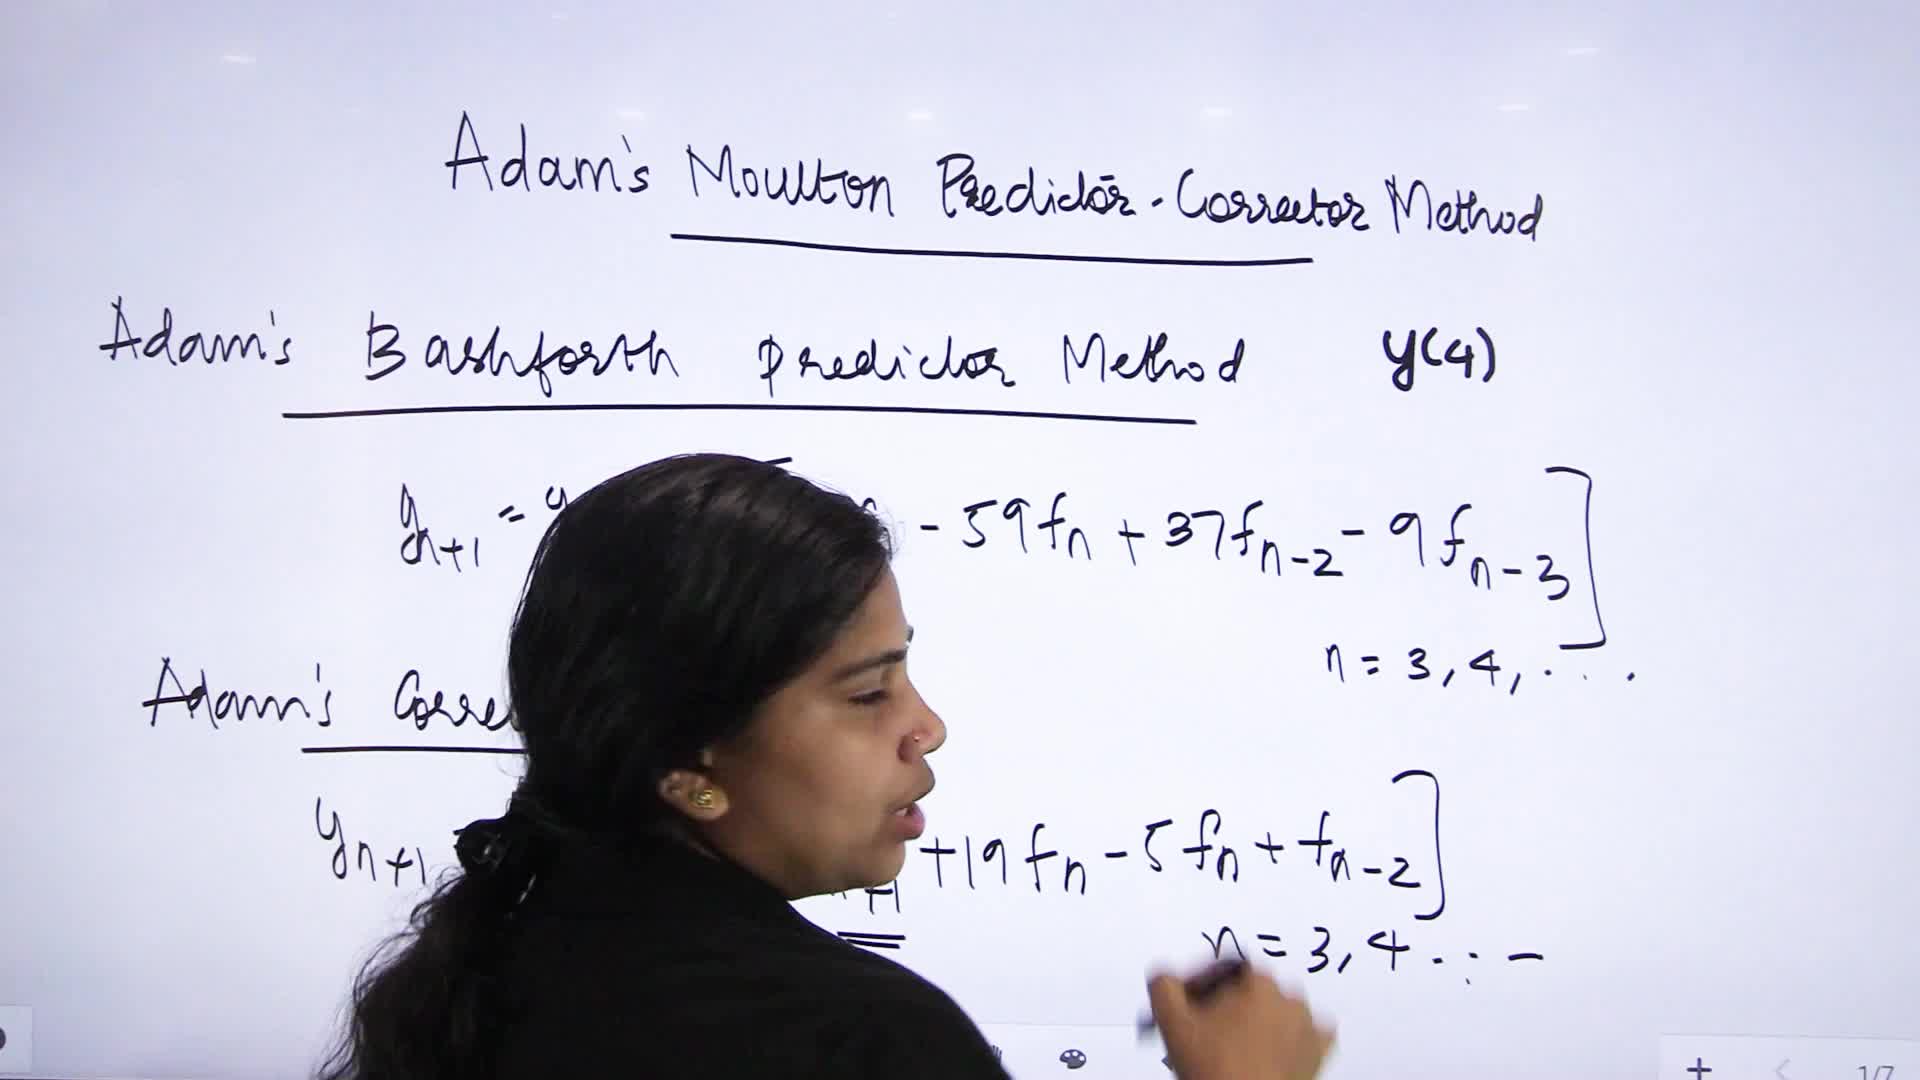 Adam's Moulton Predictor-Corrector Method
Adam's Bashforth Predictor Method y(4)
y_{n+1} = y - 59f_n + 37f_{n-2} - 9f_{n-3}]
n = 3, 4, . . .
Adam's
y_{n+1} n+1 + 19f_n - 5f_n + f_{n-2}]
n = 3, 4 . . . -
1/7